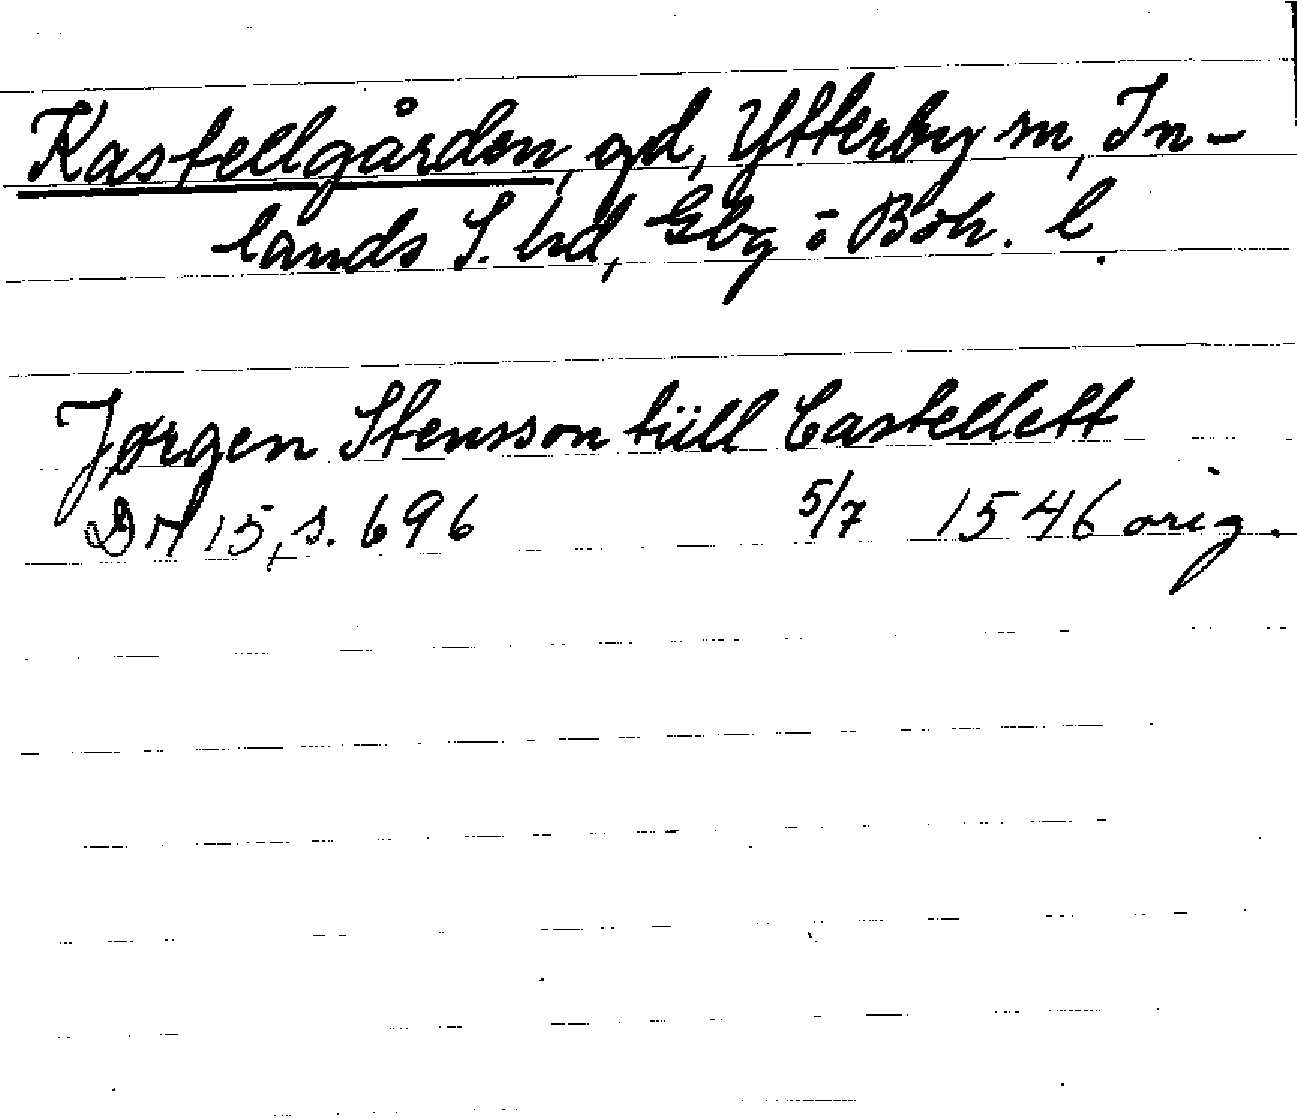 Kastellgården, gd, Ytterby sn, In-
lands S. hd, Gbg o Boh. l.
Jørgen Stensson tüll Castellett
DN 15, s. 696 5/7 1546 orig.